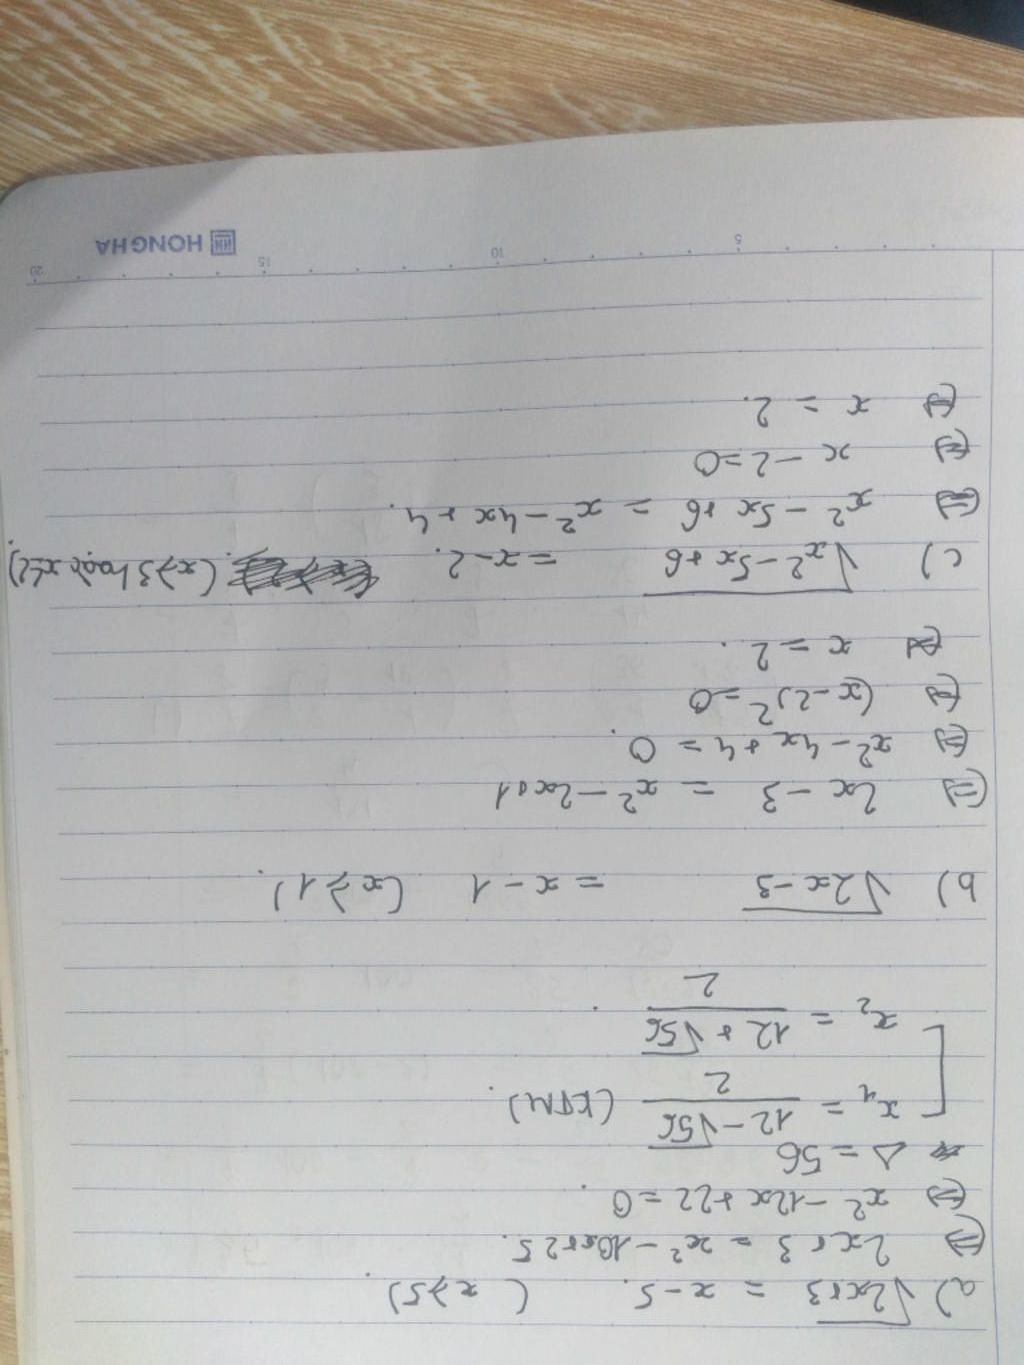 a) √2x+3 = x-5. (x⩾5).
⇔ 2x+3 = x²-10x+25.
⇔ x²-12x+22=0.
Δ=56
x₁ = 12-√56 / 2 (KTM).
x₂ = 12+√56 / 2.
b) √2x-3 = x-1 (x⩾1).
⇔ 2x-3 = x²-2x+1
⇔ x²-4x+4=0.
⇔ (x-2)²=0
⇔ x=2.
c) √x²-5x+6 = x-2. (x⩾3 hoặc x⩽2).
⇔ x²-5x+6 = x²-4x+4.
⇔ x-2=0
⇔ x=2.
5 10 15 20
HONG HA